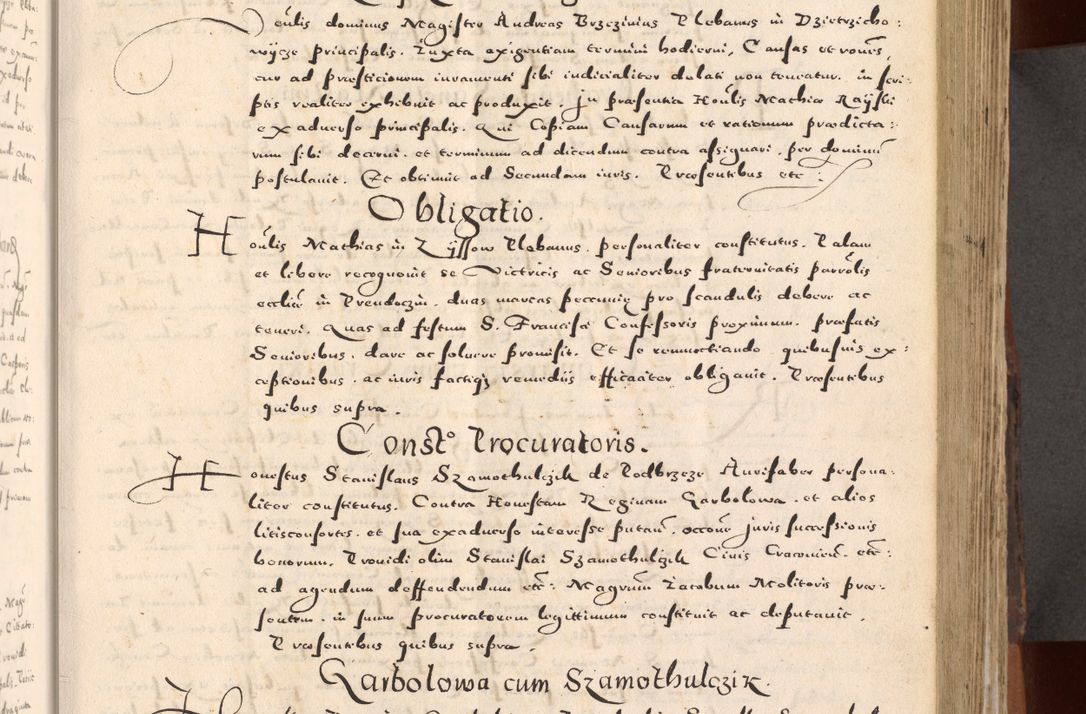 Venlis dominus Magister Andreas Brzezinius Plebanus in Dzietrzicho:
wijcze principalis. Iuxta exigentiam termini hodierni, Causas et rones,
cur ad præsticionem iuramenti sibi iudicialiter delati non teneatur. in scri:
ptis realiter exhibuit ac produxit. In præsentia Honlis Mathiæ Raijski
ex aduerso principalis. Qui Copiam Causarum et rationum prædicta:
rum sibi decerni. et terminum ad dicendum contra assignari. per dominum
postulauit. Et obtinuit ad Secundam iuris. Præsentibus etc:
Obligatio.
Honlis Mathias in Kijssow Plebanus. personaliter constitutus. Palam
et libere recognouit se Victricis ac Senioribus fraternitatis parrolis
eccliæ in Prendoczin. duas marcas pecuniæ pro scandulis debere ac
teneri. Quas ad festum S. Francisci Confessoris proximum. præfatis
Senioribus. dare ac soluere promisit. Et se remoctiando. quibusuis ex:
ceptionibus. ac iuris factiqz remedijs efficaciter obligauit. Præsentibus
quibus supra.
Consto Procuratoris.
Honestus Stanislaus Szamothulczik de Podbrzeze Aurifaber persona:
liter constitutus. Contra Honestam Reginam Garbolowa. et alios
litisconsortes. et sua exaduerso interesse putan. occone juris successionis
bonorum. Prouidi olim Stanislai Szamothulczik Ciuis Cracouien. etc:
ad agendum deffendendum etc: Magrum Iacobum Molitoris præ:
sentem. in suum procuratorem legittimum constituit ac deputauit.
Præsentibus quibus supra.
Garbolowa cum Szamothulczik.